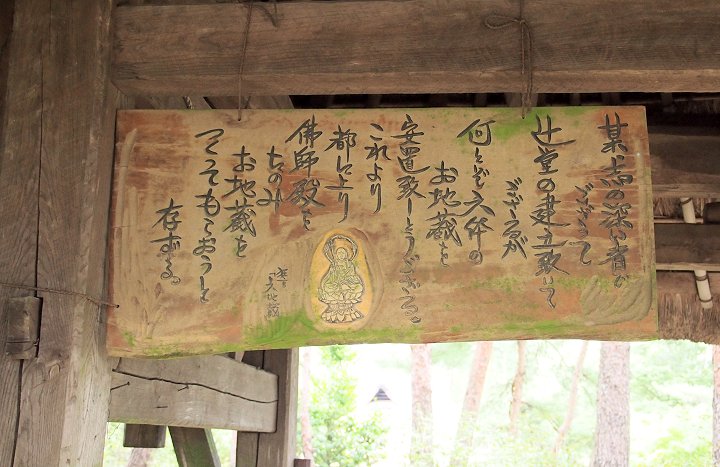 某志の深い者が
ござって
辻堂の建立致いて
ござるが
何とぞ六体の
お地蔵を
安置致しとうござる。
これより
都に上り
佛師殿を
たのみ
お地蔵を
つくってもらおうと
存ずる。
狂言
六地蔵